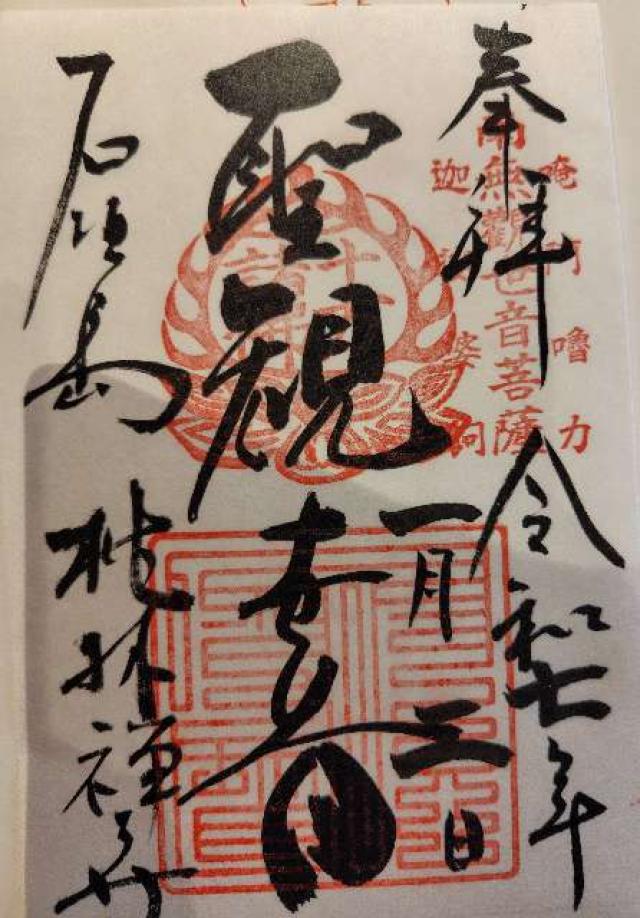 奉拝
令和七年
一月三日
南無觀世音菩薩
唵阿嚕力
迦 婆
聖観音
石垣島
桃林禅寺